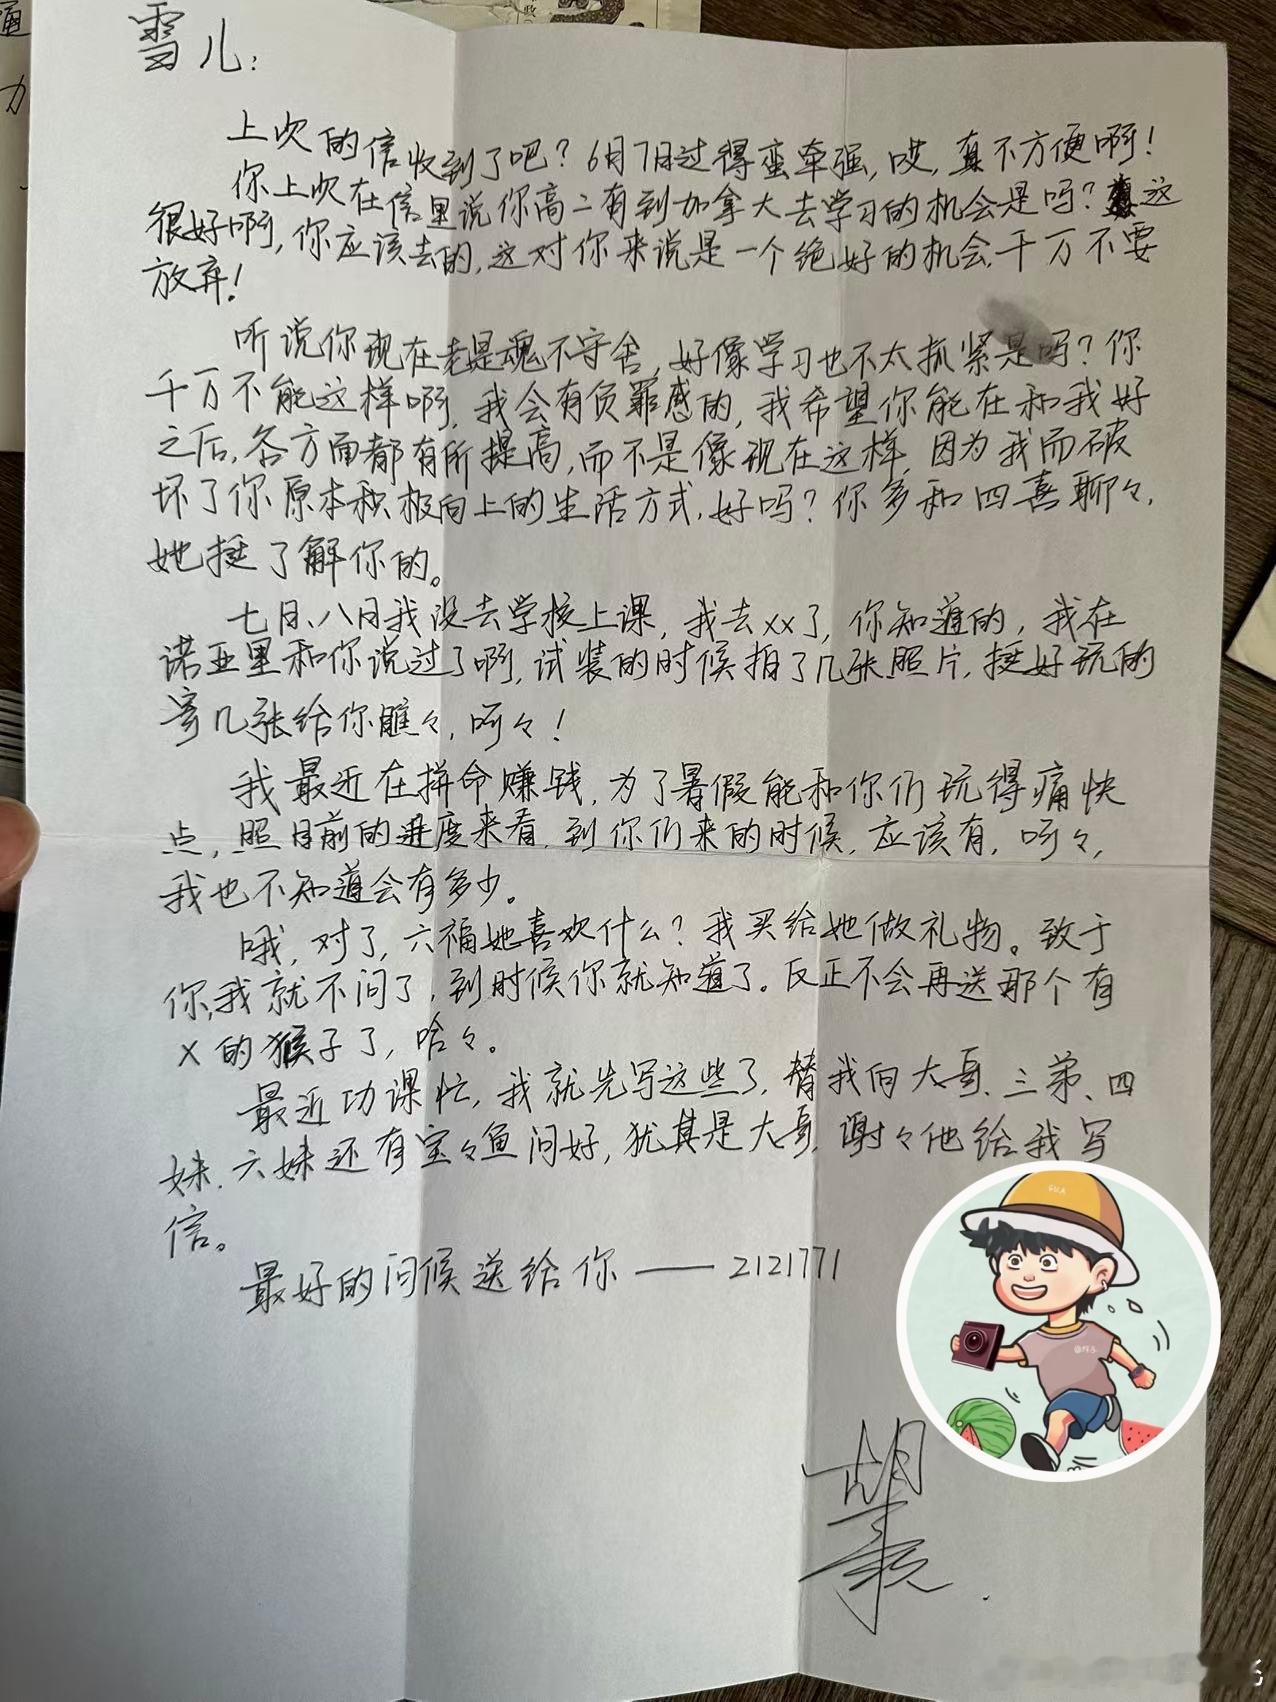 雪儿：
上次的信收到了吧？6月7日过得蛮牵强，哎，真不方便啊！
你上次在信里说你高二有到加拿大去学习的机会是吗？这
很好啊，你应该去的，这对你来说是一个绝好的机会，千万不要
放弃！
听说你现在老是魂不守舍，好像学习也不太抓紧是吗？你
千万不能这样啊，我会有负罪感的，我希望你能在和我好
之后，各方面都有所提高，而不是像现在这样，因为我而破
坏了你原本积极向上的生活方式，好吗？你多和四喜聊々，
她挺了解你的。
七月、八月我没去学校上课，我去xx了，你知道的，我在
诺亚里和你说过了啊，试装的时候拍了几张照片，挺好玩的
寄几张给你瞧々，呵々！
我最近在拼命赚钱，为了暑假能和你们玩得痛快
点，照目前的进度来看，到你们来的时候，应该有，呵々，
我也不知道会有多少。
哦，对了，六福她喜欢什么？我买给她做礼物。致于
你，我就不问了，到时候你就知道了。反正不会再送那个有
X的猴子了，哈々。
最近功课忙，我就先写这些了，替我向大哥、三弟、四
妹、六妹还有宝々鱼问好，犹其是大哥，谢々他给我写
信。
最好的问候送给你——2121771
胡
GUA